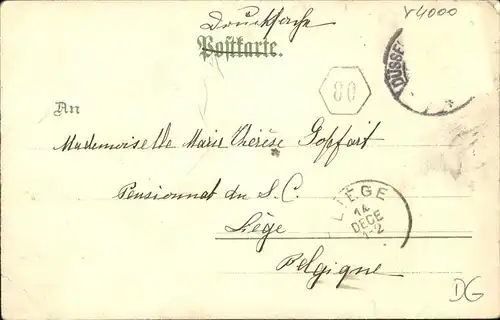 Drucksache
Y4000
Postkarte.
DÜSSEL
80
An
Mademoiselle Marie Thérèse Goffart
Pensionnat du S. C.
LIÈGE
14
DECE
1-2
Liège
Belgique
DG